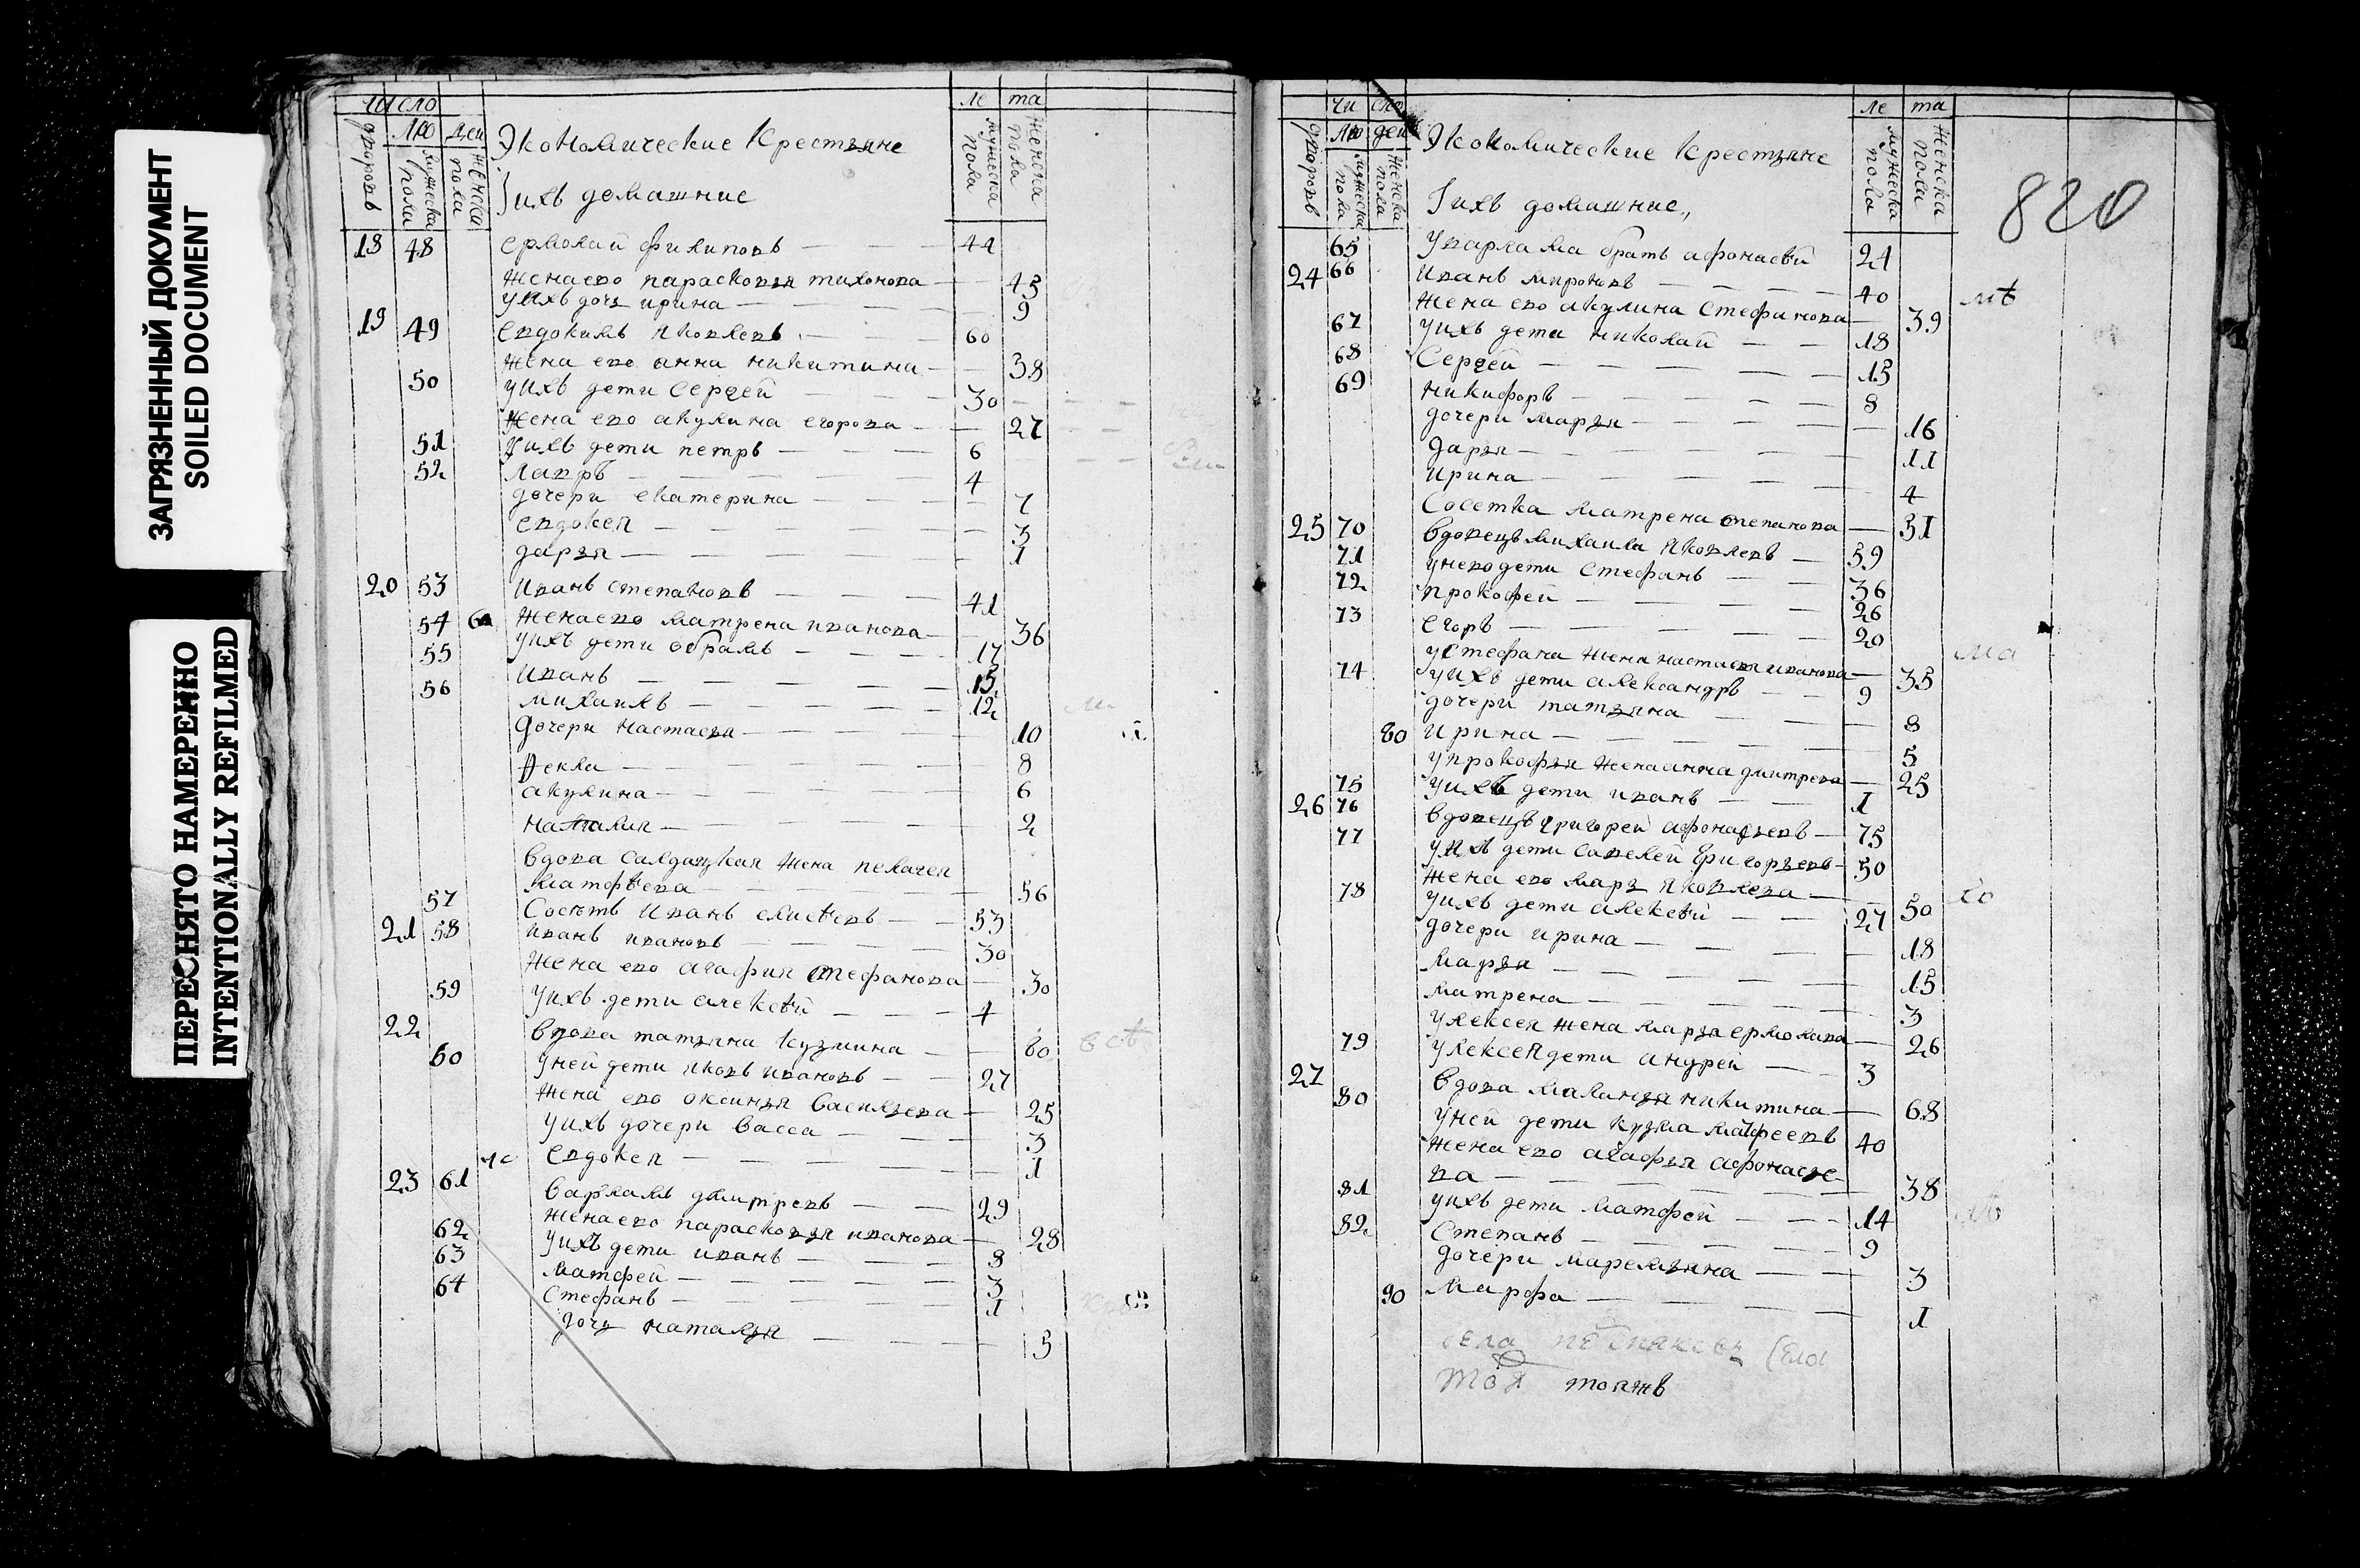 ЗАГРЯЗНЕННЫЙ ДОКУМЕНТ
SOILED DOCUMENT
ПЕРЕСНЯТО НАМЕРЕННО
INTENTIONALLY REFILMED
число ле та
дворовъ лю дей Экономические Крестьяне мужеска пола женска пола
мужеска пола женска пола Iихъ домашние
18 48 ермолай филиповъ 44
жена ево парасковья тихонова 45
уихъ дочь ирина 9
19 49 евдокимъ яковлевъ 60
жена ево анна никитина 38
50 уихъ дети Сергей 30
жена ево акулина егорова 27
51 уихъ дети петръ 6
52 лавръ 4
дочери екатерина 7
евдокея 3
дарья 1
20 53 иванъ степановъ 41
жена ево матрена иванова 36
54 уихъ дети обрамъ 17
55 иванъ 15
56 михаилъ 12
дочери настасья 10
Фекла 8
акулина 6
наталия 2
вдова салдацкая жена пелагея
матфѣева 56
57 Сосѣтъ иванъ елисѣевъ 53
21 58 иванъ ивановъ 30
жена ево агафия стефанова 30
59 уихъ дети алексѣй 4
22 вдова татьяна кузмина 60
60 уней дети яковъ ивановъ 27
жена ево оксинья васильева 25
уихъ дочери васса 3
евдокея 1
23 61 варламъ дмитревъ 29
жена ево парасковья иванова 28
62 уихъ дети иванъ 8
63 матфей 3
64 Стефанъ 1
дочь наталья 5
чи сло ле та
820
дворовъ лю дей Экономические крестьяне мужеска пола женска пола
мужеска пола женска пола Iихъ домашние
65 уварлама братъ афонасѣй 24
24 66 иванъ мироновъ 40
жена ево акулина стефанова 39
67 уихъ дети николай 18
68 Сергей 15
69 никифоръ 8
дочери марья 16
дарья 11
ирина 4
Сосетка матрена степанова 31
25 70 вдовецъ михаила яковлевъ 59
71 унево дети стефанъ 36
72 прокофей 26
73 егоръ 20
устефана жена настасья иванова 35
74 уихъ дети александръ 9
дочери татьяна 8
80 ирина 5
упрокофья жена анна дмитрева 25
75 уихъ дети иванъ 1
26 76 вдовецъ григорей афонасьевъ 75
77 уихъ дети савелей григорьевъ 50
жена ево марья яковлева 50
78 уихъ дети алексѣй 27
дочери ирина 18
марья 15
матрена 3
улексея жена марья ермолина 26
79 улексея дети андрей 3
27 вдова маланья никитина 68
80 уней дети кузма матфеевъ 40
жена ево агафья афонасье-
ва 38
81 уихъ дети матфей 14
82 Степанъ 9
дочери маремьяна 3
90 марфа 1
тоятжъ